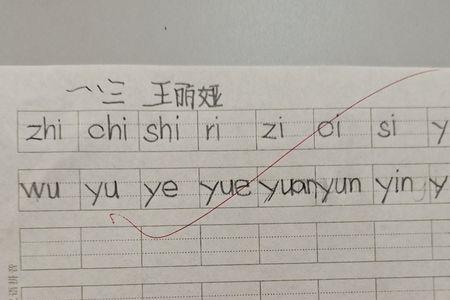 一八三 王丽娅
zhi chi shi ri zi ci si y
wu yu ye yue yuan yun yin y
语拼音